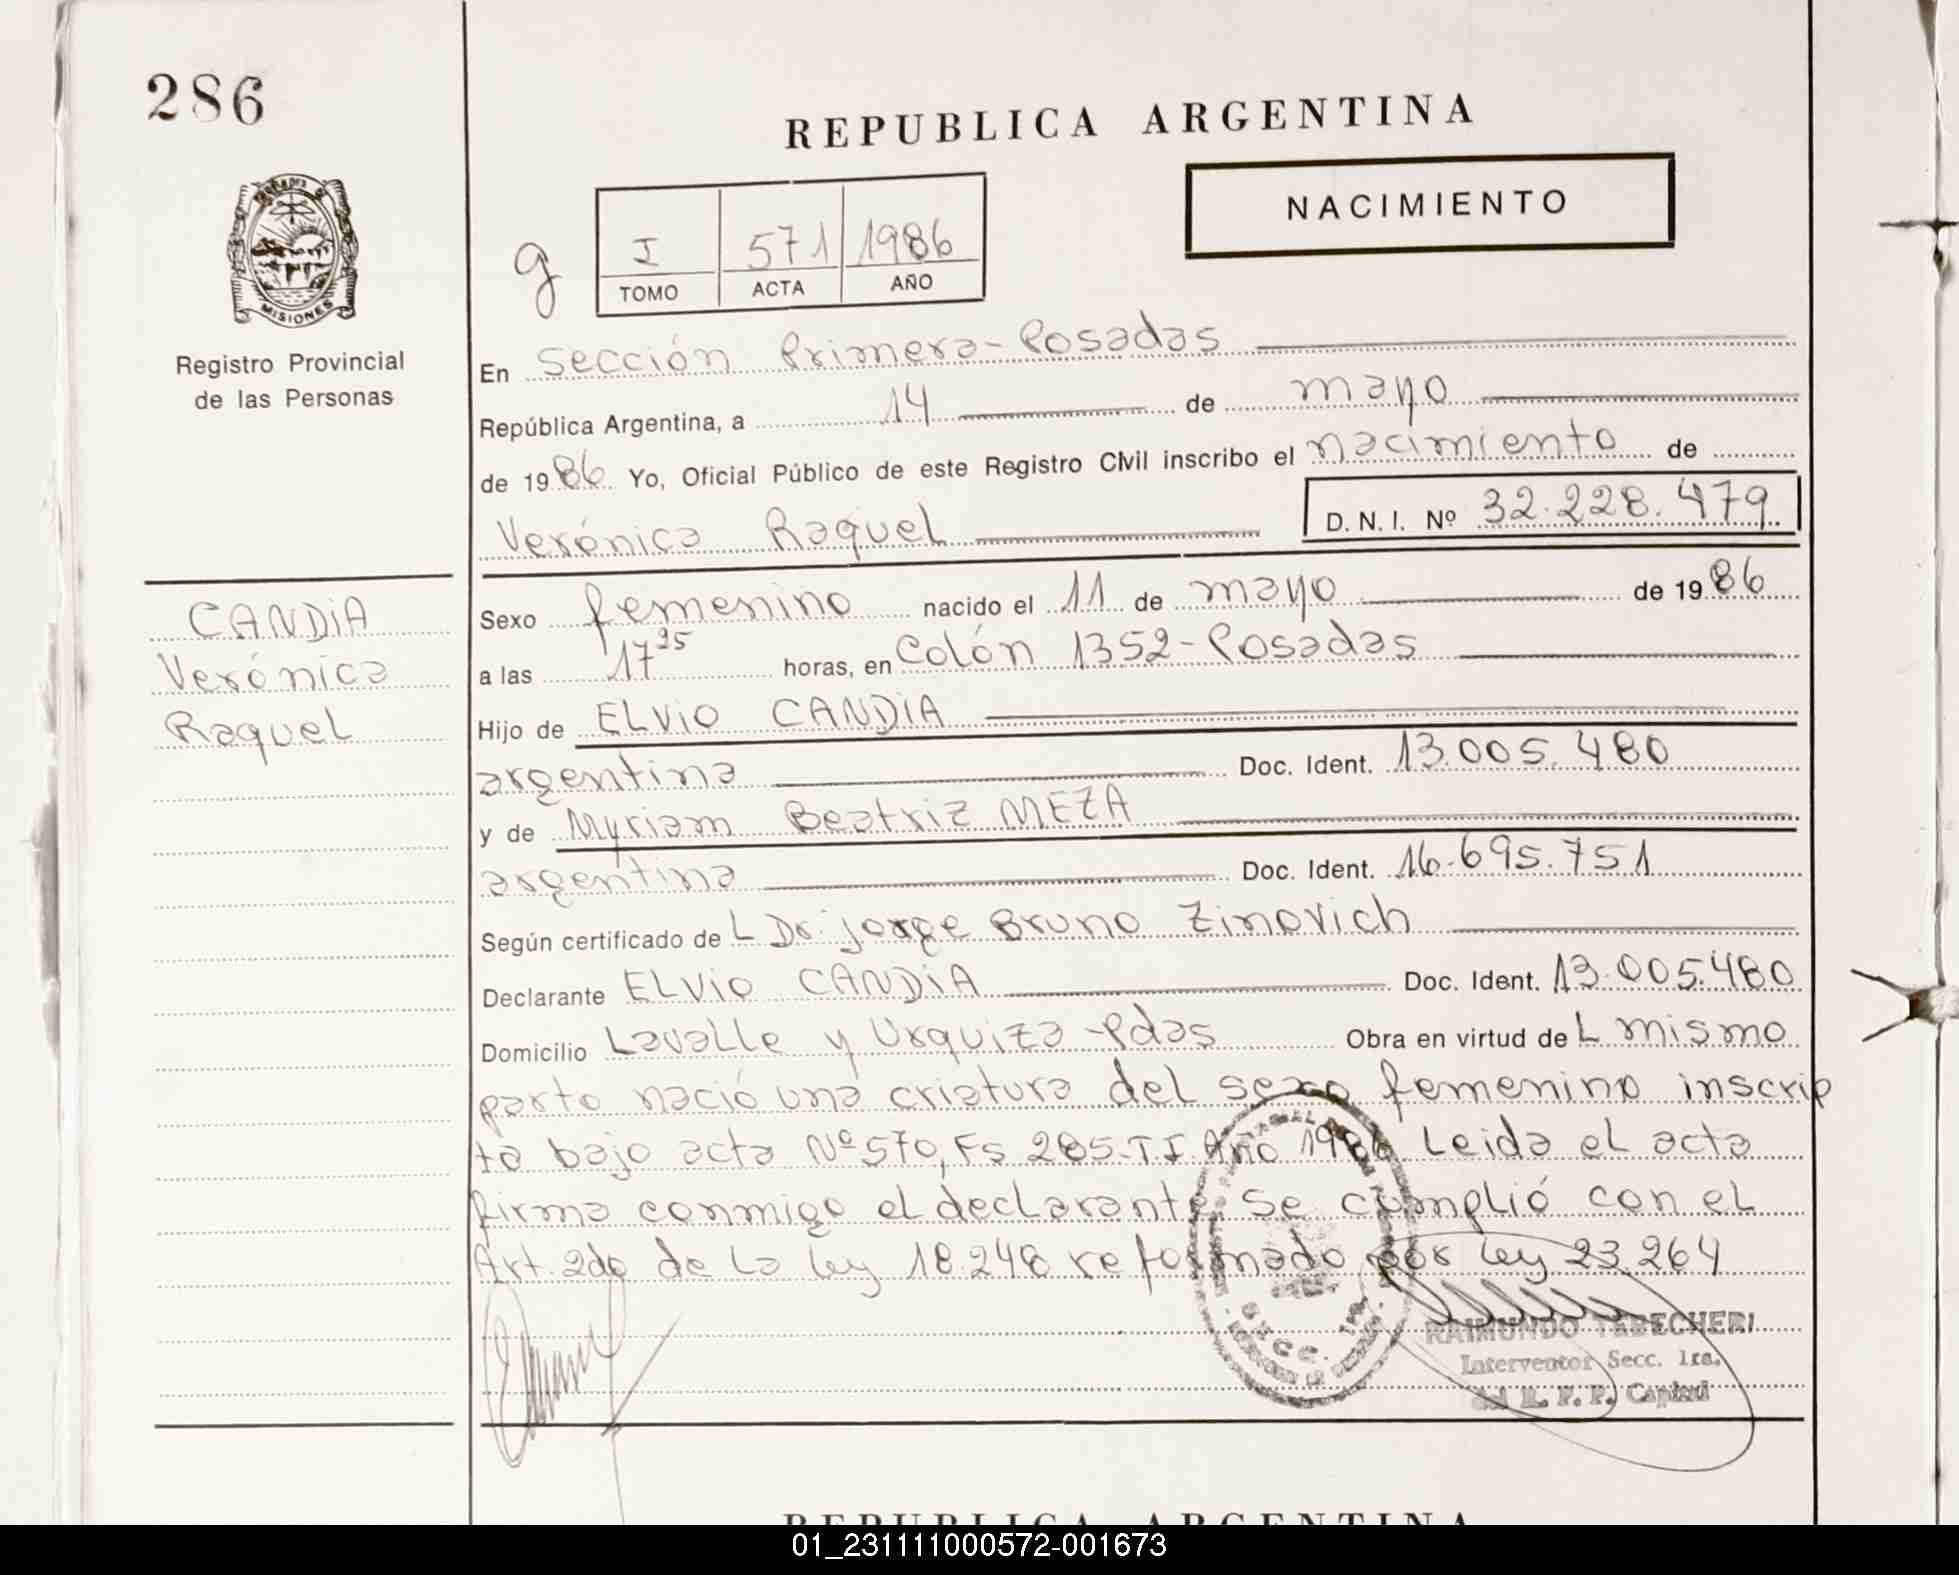 286
REPUBLICA ARGENTINA
NACIMIENTO
g
I 571 1986
TOMO ACTA AÑO
MISIONES
Registro Provincial
de las Personas
En Sección Primera-Posadas
República Argentina, a 14 de mayo
de 1986 Yo, Oficial Público de este Registro Civil inscribo el nacimiento de
Verónica Raquel D. N. I. Nº 32.228.479
CANDiA
Verónica
Raquel
Sexo femenino nacido el 11 de mayo de 1986
a las 17 25 horas, en Colón 1352-Posadas
Hijo de ELViO CANDiA
argentina Doc. Ident. 13.005.480
y de Myriam Beatriz MEZA
argentina Doc. Ident. 16.695.751
Según certificado de L Dr. Jorge Bruno Zinovich
Declarante ELViO CANDiA Doc. Ident. 13.005.480
Domicilio Lavalle y Urquiza-Pdas Obra en virtud de L mismo
parto nació una criatura del sexo femenino inscrip
ta bajo acta Nº 570, Fs 285-T I. Año 1986 Leida el acta
firma conmigo el declarante, se cumplió con el
Art. 2do de la ley 18.248 reformado por ley 23.264
SECC. 1ra.
RAIMUNDO TABECHERI
Interventor Secc. 1ra.
del R. P. P. Capital
REPUBLICA ARGENTINA
01_231111000572-001673